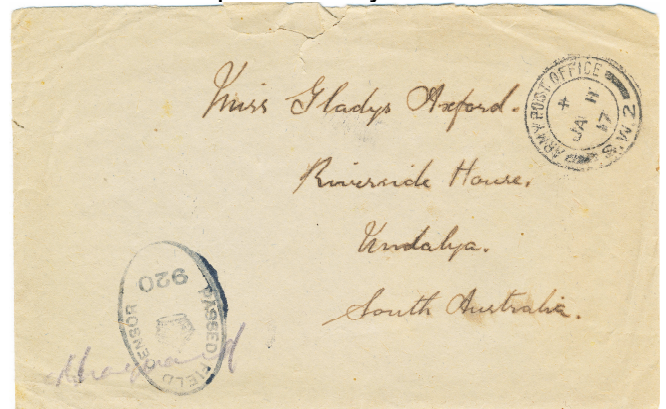 Miss Gladys Axford.
Riverside House,
Undalya.
South Australia.
ARMY POST OFFICE
4
JA 11
17
S Z MA
PASSED FIELD CENSOR
920